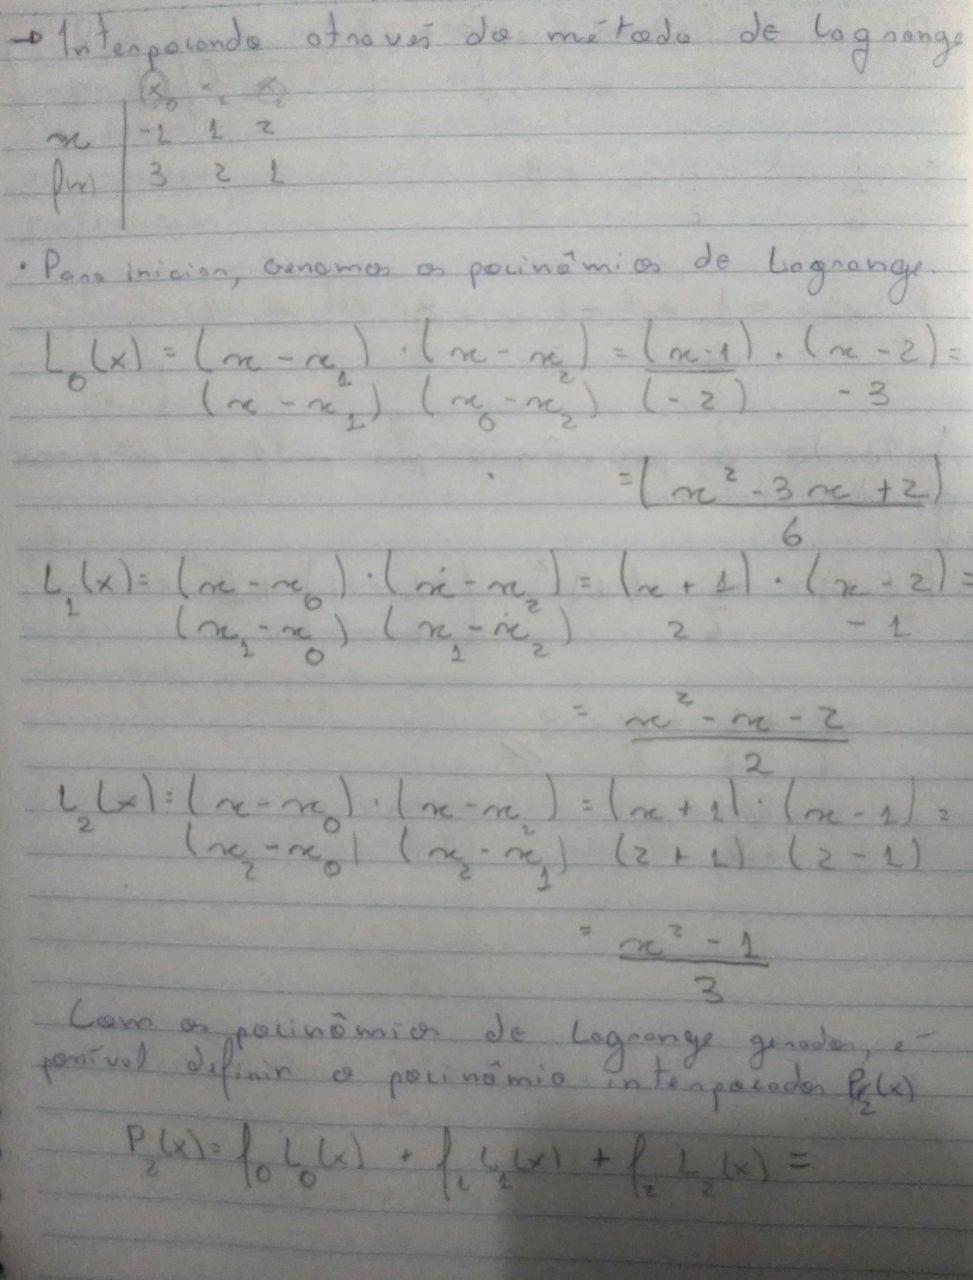 → Interpolando através do método de Lagrange
x0 x1 x2
x -1 1 2
f(x) 3 2 1
• Para iniciar, geramos os polinômios de Lagrange.
L0(x) = (x - x1) · (x - x2) = (x-1) · (x - 2) =
(x - x1) (x0 - x2) (-2) -3
= (x² - 3x + 2)
6
L1(x) = (x - x0) · (x - x2) = (x + 1) · (x - 2) =
(x1 - x0) (x1 - x2) 2 -1
= x² - x - 2
2
L2(x) = (x - x0) · (x - x1) = (x + 1) · (x - 1) =
(x2 - x0) (x2 - x1) (2 + 1) (2 - 1)
= x² - 1
3
Com os polinômios de Lagrange gerados, é
possível definir o polinômio interpolador P2(x)
P2(x) = f0 L0(x) + f1 L1(x) + f2 L2(x) =